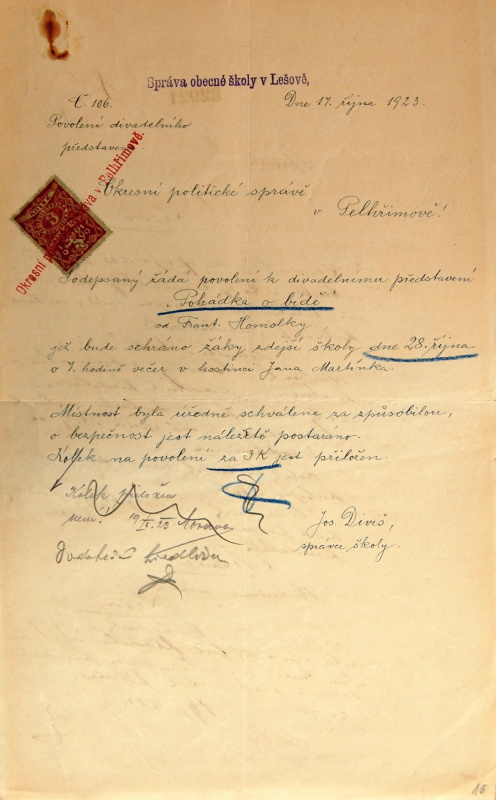 Správa obecné školy v Lešově,
Č. 106. Dne 17. října 1923.
Povolení divadelního
představení.
Okresní politické správě
v Pelhřimově!
Okresní politická správa v Pelhřimově.
3
Podepsaný žádá povolení k divadelnímu představení
"Pohádka o bídě"
od Frant. Homolky
jež bude sehráno žáky zdejší školy dne 28. října
o 7. hodině večer v hostinci Jana Martínka.
Místnost byla úředně schválena za způsobilou,
o bezpečnost jest náležitě postaráno.
Kolek na povolení za 3 K jest přiložen.
Kolek přiložen
není!
Jos. Diviš,
správce školy.
Dodatečně
15